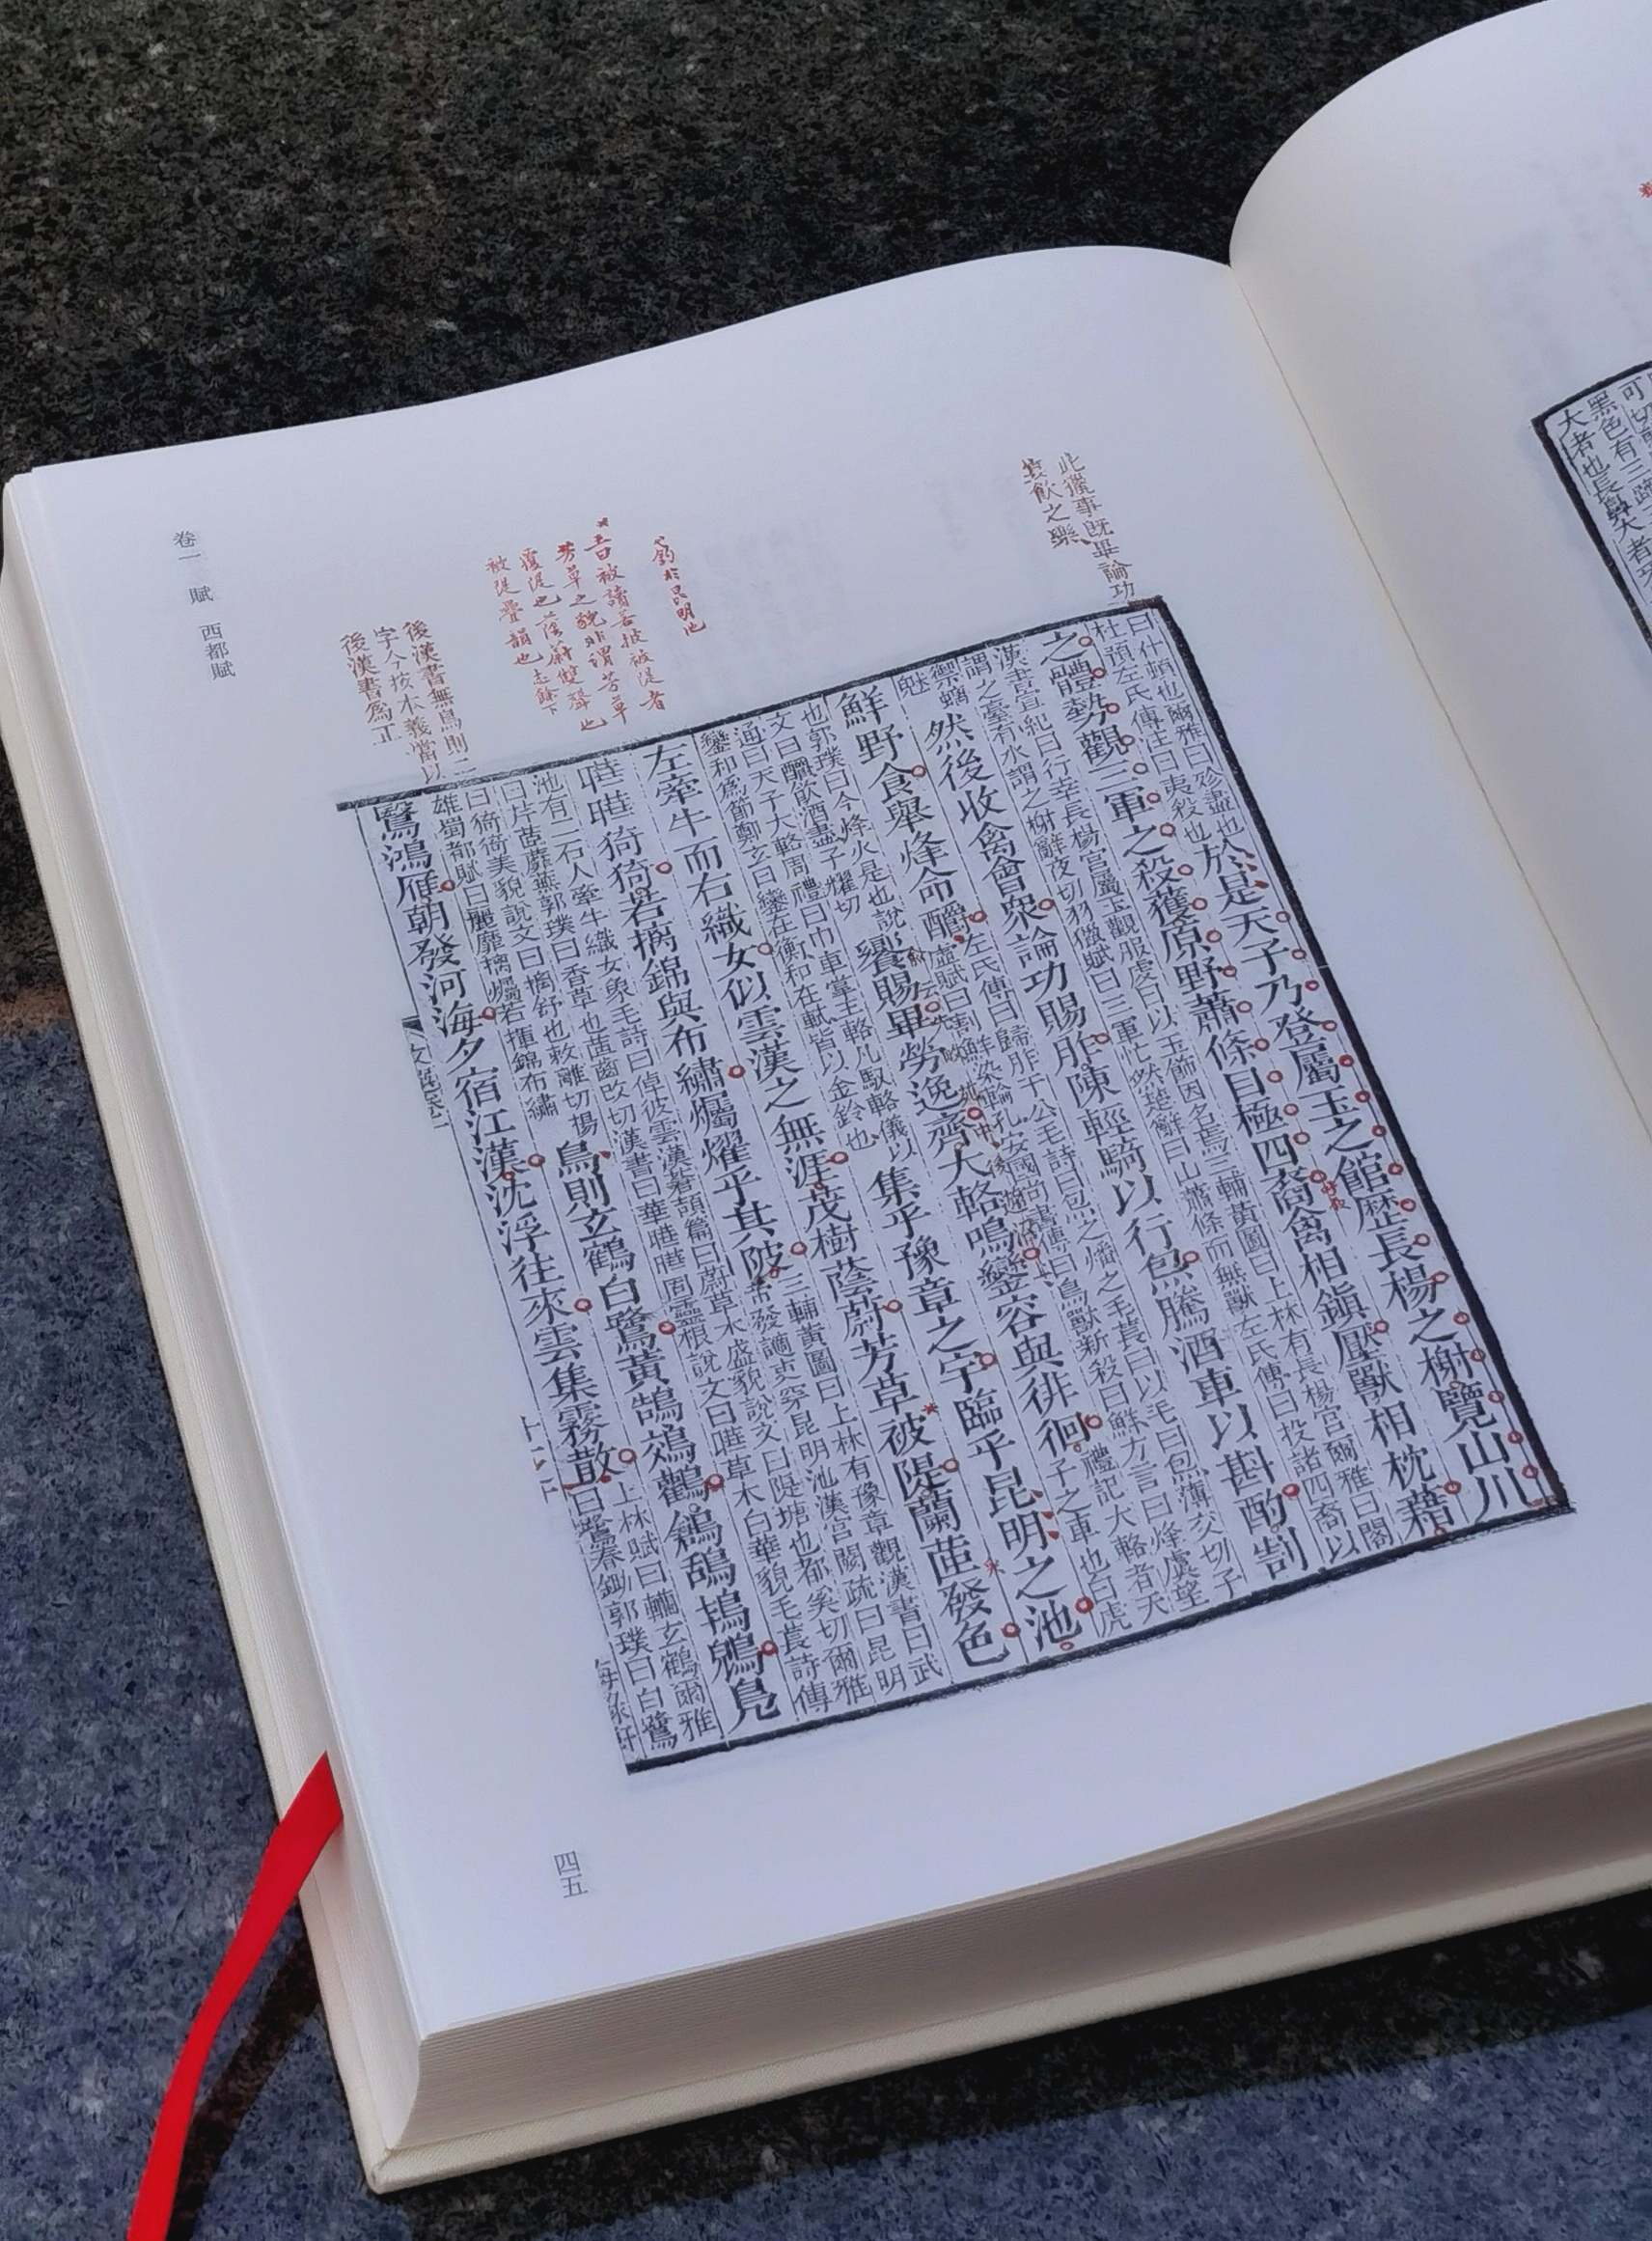 此獵事既畢論功
賞飲之樂
曰什頓也爾雅曰殄盡也
杜預左氏傳注曰夷殺也
於是天子乃登屬玉之館歷長楊之榭覽山川
之體勢觀三軍之殺獲原野蕭條目極四裔禽相鎮壓獸相枕藉
漢書宣紀曰行幸長楊宮屬玉觀服虔曰以玉飾因名焉三輔黃圖曰上林有長楊宮爾雅曰闍
謂之臺有水謂之榭辭夜切羽獵賦曰三軍忙然楚辭曰山蕭條而無獸左氏傳曰投諸四裔以
禦螭
魅
然後收禽會眾論功賜胙陳輕騎以行炰騰酒車以斟酌割
鮮野食舉烽命釂
左氏傳曰歸胙于公毛詩曰炰之燔之毛萇曰以毛曰炰薄交切子
虛賦曰割鮮染輪孔安國尚書傳曰鳥獸新殺曰鮮方言曰烽虞望
也郭璞曰今烽火是也說
文曰釂飲酒盡子曜切
饗賜畢勞逸齊大輅鳴鑾容與徘徊
禮記大輅者天
子之車也白虎
通曰天子大輅周禮曰巾車掌王輅凡馭輅儀以
鑾和為節鄭玄曰鑾在衡和在軾皆以金鈴也
集乎豫章之宇臨乎昆明之池
左牽牛而右織女似雲漢之無涯茂樹蔭蔚芳草被隄蘭茝發色
曄曄猗猗若摛錦與布繡爥燿乎其陂
三輔黃圖曰上林有豫章觀漢書曰武
帝發謫吏穿昆明池漢宮闕疏曰昆明
池有二石人牽牛織女象毛詩曰倬彼雲漢蒼頡篇曰蔚草木盛貌說文曰隄塘也都奚切爾雅
曰芹茝蘼蕪郭璞曰香草也茝齒改切漢書曰華曄曄固靈根說文曰曄草木白華貌毛萇詩傳
曰猗猗美貌說文曰摛舒也敕離切揚
雄蜀都賦曰麗靡摛爥若揮錦布繡
鳥則玄鶴白鷺黃鵠鵁鸛鶬鴰鴇鶂鳧
鷖鴻雁朝發河海夕宿江漢沈浮往來雲集霧散
上林賦曰轥玄鶴爾雅
曰鷺舂鋤郭璞曰白鷺
蒭於昆明池
五曰被讀若披被隄者
芳草之貌非謂芳草
覆隄也蔭蔚雙聲也
被隄疊韻也志餘下
後漢書無鳥則二
字今按本義當以
後漢書為正
卷一　賦　西都賦
四五
可
黑色有三蹄
大者也長鼻大者